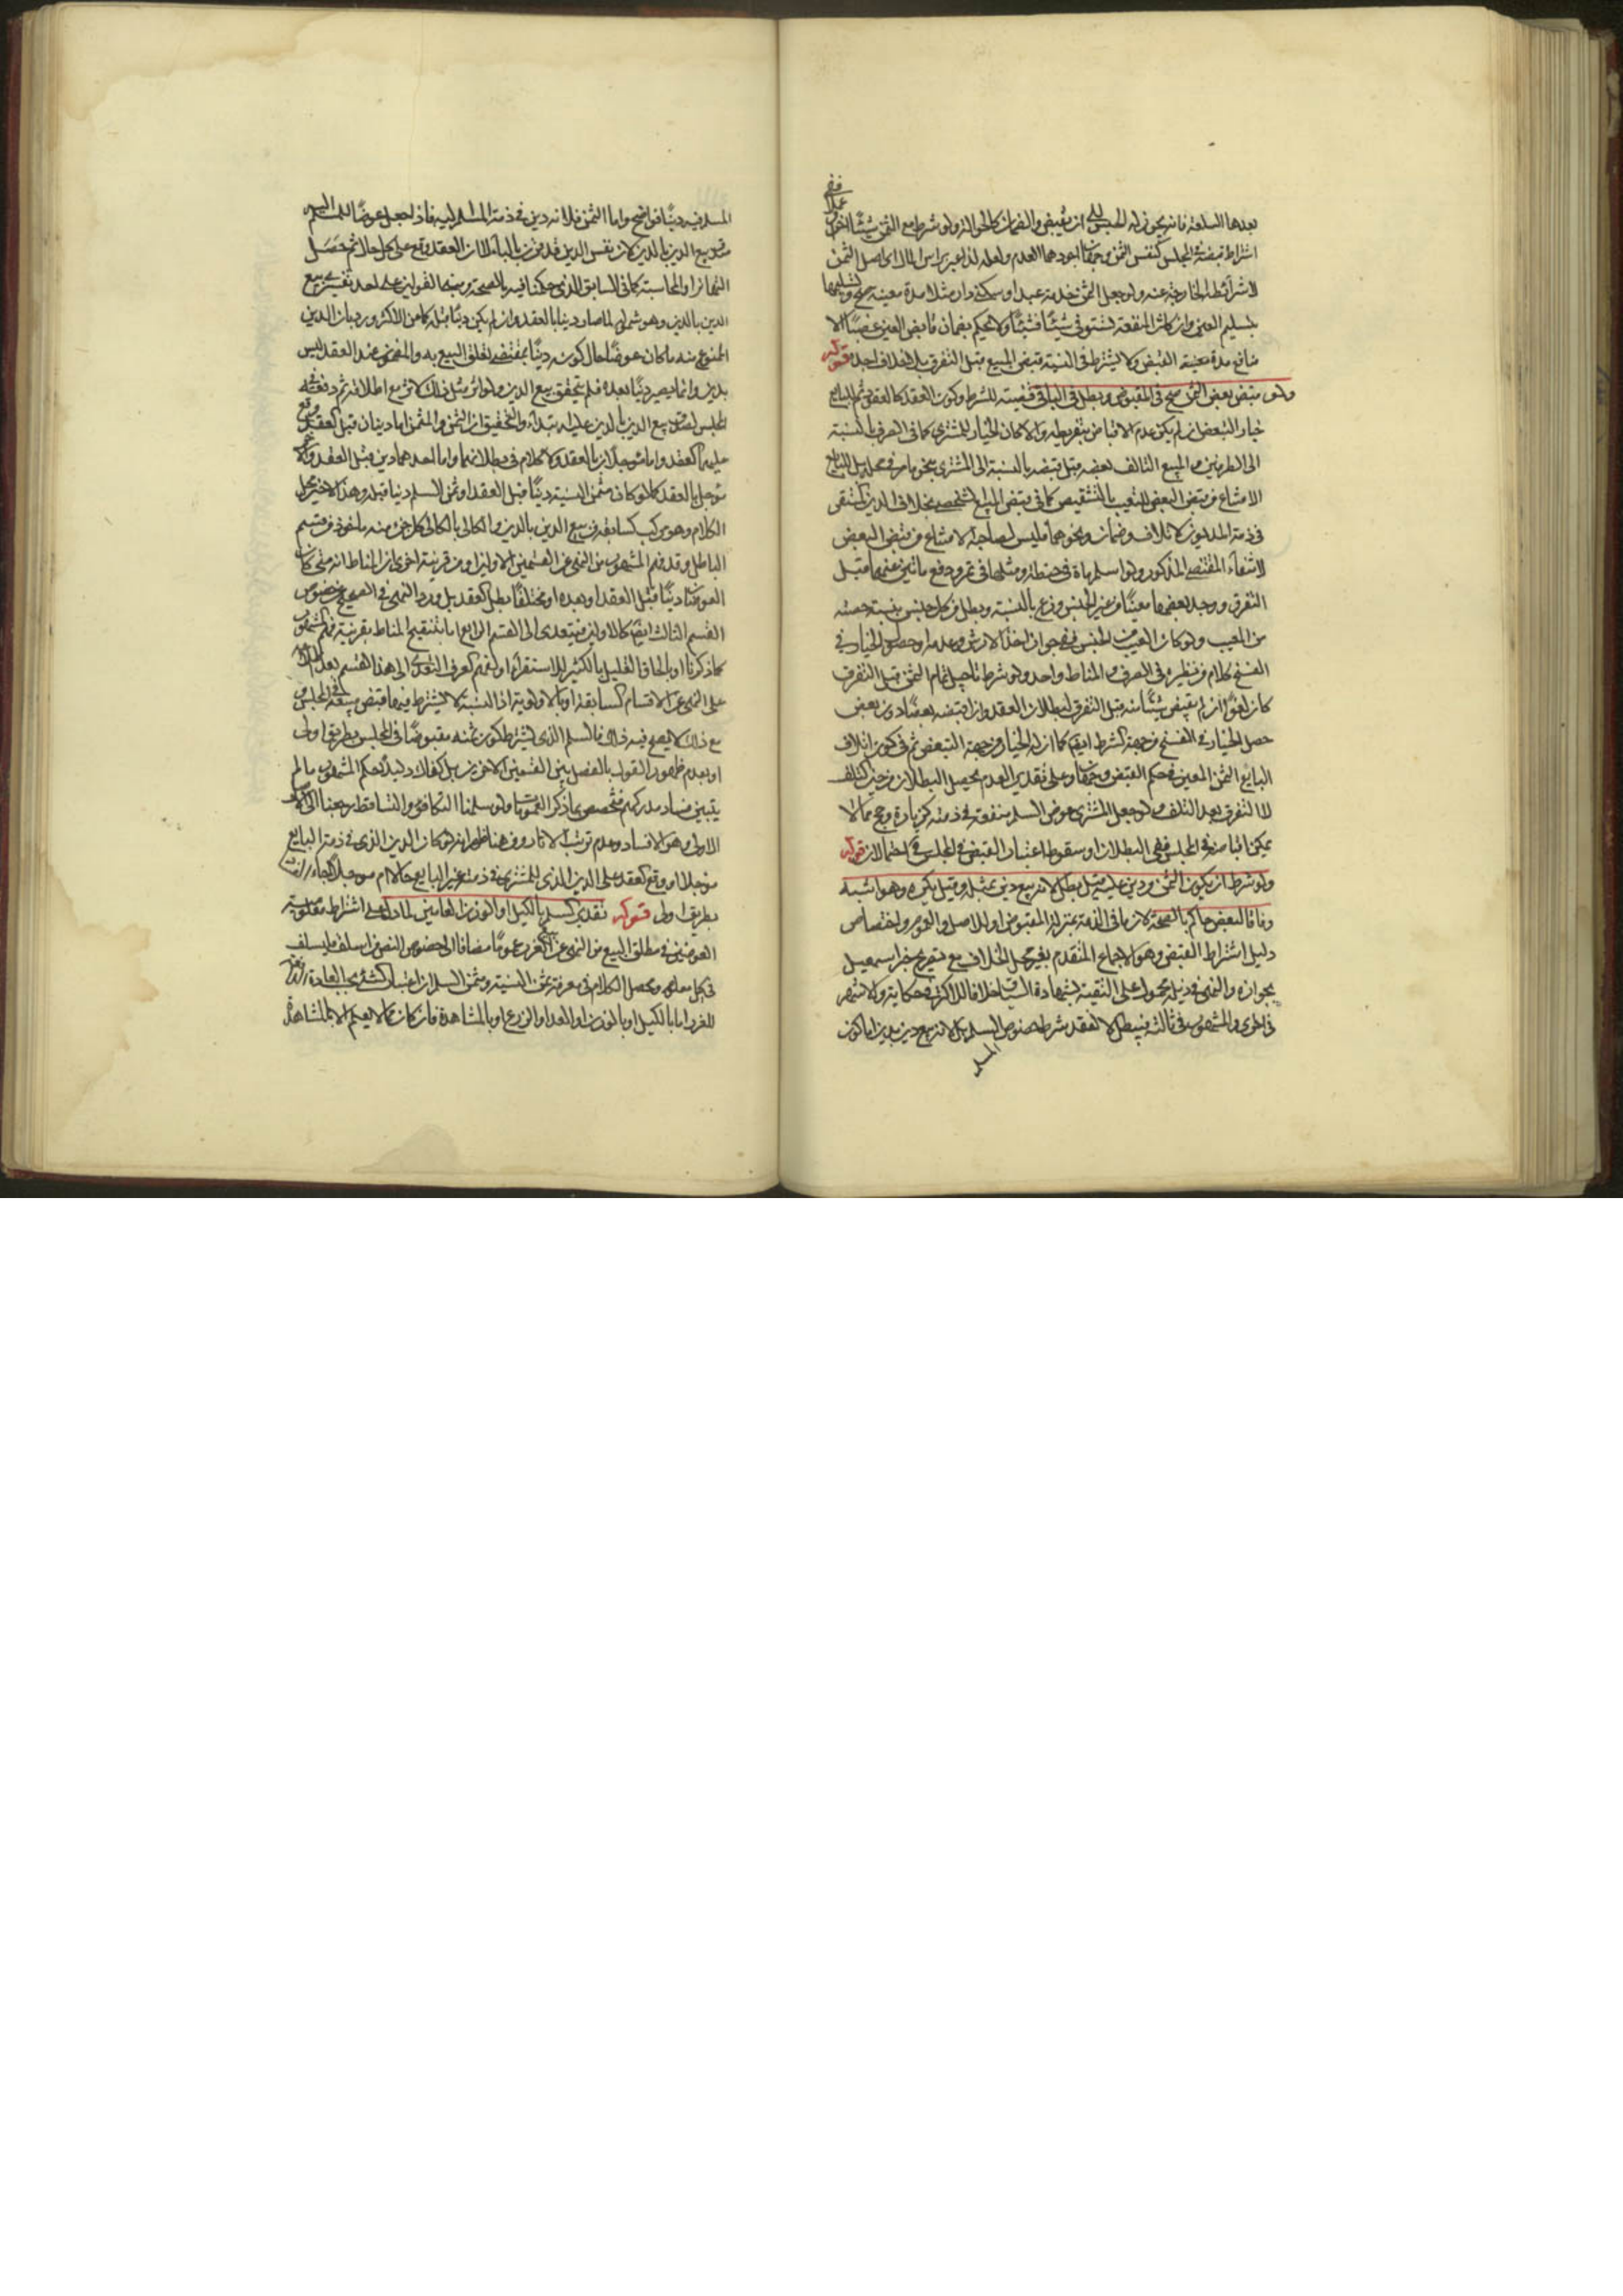 بعدها السلعة فانه يجوز له الحبس الى ان يقبض والضمان كالحوالة ولو شرط مع الثمن شيئا
اشتراط قبضه فى المجلس كنفس الثمن وجهان اجودهما العدم ولعله لذا عبر براس المال اى اصل الثمن
لا شرائطه الخارجة عنه ولو جعل الثمن خدمة عبد او سكنى دار مثلا مدة معينة صح وتسليمها
بتسليم العين وان كانت المنفعة تستوفى شيئا فشيئا ولا يحكم بضمان قابض العين غصبا الا
منافع مدة معينة القبض ولا يشترط فى النسية قبض المبيع قبل التفرق بلا خلاف اجده قوله
ولو قبض بعض الثمن صح فى المقبوض وبطل فى الباقى قضية للشرط وكون العقد كالعقود ثم للبايع
خيار التبعض ان لم يكن عدم الاقباض بتفريطه والا كان الخيار للمشترى كما فى الصرف بالنسبة
الى الطرفين والمبيع التالف بعضه قبل قبضه بالنسبة الى المشترى بنحو ما مر فى محله بل للبايع
الامتناع من قبض البعض للتعيب بالتشقيص كما فى قبض المبيع الشخصى بخلاف الدين المستقر
فى ذمة المديون كاتلاف وضمان ونحوهما فليس لصاحبه الامتناع من قبض البعض
لانتفاء المقتضى المذكور ولو اسلم ماة فى حنطة ومثلها فى تمر ودفع ماتين عنهما قبل
التفرق ووجد بعضها معيبا من غير الجنس وزع بالنسبة وبطل من كل جنس بنسبة حصته
من المعيب ولو كان العيب من الجنس ففى جواز اخذ الارش وعدمه وحصول الخيار فى
الفسخ كلام من نظيره فى الصرف والمناط واحد ولو شرط تاجيل تمام الثمن قبل التفرق
كان لغوا ان لم يقبض شيئا منه قبل التفرق لبطلان العقد وان اقبضه بعضا دون بعض
حصل الخيار فى الفسخ من جهة الشرط ايضا كما ان له الخيار من جهة التبعض ثم فى كون اتلاف
البايع الثمن المعين فى حكم القبض وجهان وعلى تقدير العدم يحصل البطلان من حين التلف
لا التفرق بعد التلف ولو جعل المشترى عوض السلم منفعة فى ذمته كزيارة وحج مما لا
يمكن اقباضه فى المجلس ففى البطلان او سقوط اعتبار القبض فى المجلس احتمالان قوله
ولو شرط ان يكون الثمن من دين عليه قيل يبطل لانه بيع دين بمثله وقيل يكره وهو اشبه
وفاقا لبعض حاكم بالصحة لان ما فى الذمة بمنزلة المقبوض او للاصل والعموم ولاختصاص
دليل اشتراط القبض وهو الاجماع المتقدم بغير محل الخلاف مع تصريح خبر اسمعيل
بجوازه والنهى فى ذيله محمول على التقية بشهادة السياق خلافا للاكثر فى حكاية والاشهر
فى اخرى والمشهور فى ثالثة فيبطل لا لفقد شرط خصوص السلم بل لانه بيع دين بدين اما كون
المسلم
المسلم فيه دينا فواضح واما الثمن فلانه دين فى ذمة المسلم اليه فاذا جعل عوضا للمسلم اليه
صدق بيع الدين بالدين لان نفس الدين قد قرن بالباء لان العقد وقع على كل حال ثم حصل
التهاتر او المحاسبة كما فى السابق الذى حكمنا فيه بالصحة
الدين بالدين وهو شموله لما صار دينا بالعقد وان لم يكن دينا قبله كما من الاكثر ورد بان الدين
الممنوع منه ما كان عوضا حال كونه دينا بمقتضى تعلق البيع به والمضمون عند العقد ليس
بدين وانما يصير دينا بعده فلم يتحقق بيع الدين
المجلس لصدق بيع الدين بالدين عليه ابتداء والتحقيق ان الثمن والمثمن اما دينان قبل العقد وقع
عليهما العقد واما مؤجلان بالعقد ولا كلام فى بطلانهما واما احدهما دين قبل العقد والاخر
مؤجل بالعقد كما لو كان مثمن النسية دينا قبل العقد او ثمن السلم دينا قبله وهذا الاخير محل
الكلام وهو مركب كسابقه من بيع الدين بالدين والكالى بالكالى كل جزء منه ماخوذ من قسم
الباطل وقد فهم المشهور من النهى عن القسمين الاولين او من قرينة اخرى ان المناط انه متى كان
العوضان دينا قبل العقد او بعده او مختلفا بطل العقد بل ورد النهى فى الصحيح عن خصوص
القسم الثالث ايضا كالاولين فيتعدى الى القسم الرابع اما بتنقيح المناط بقرينة فهم المشهور
كما ذكرنا او بالحاق القليل بالكثير للاستقراء او بفهم العرف التعدى الى هذا القسم بعد الدلالة
على النهى عن الاقسام السابقة او بالاولوية اذ النسية لا يشترط فيها قبض مبيعه فى المجلس
مع ذلك لا يصح فيه ذلك فالسلم الذى يشترط كون ثمنه مقبوضا فى المجلس بطريق اولى
او بعدم ظهور القول بالفصل بين القسمين الاخرين بل كفاك دليلا حكم المشهور ما لم
يتبين فساد مدركهم فتخصص بما ذكر العمومات ولو سلمنا التكافؤ والتساقط رجعنا الى الاصل
الاولى وهو الافساد وعدم ترتب الاثار ومن هنا ظهر انه لو كان الدين الذى فى ذمة البايع
مؤجلا او وقع العقد على الدين الذى للمشترى فى ذمة غير البايع حالا ام مؤجلا
بطريق اولى قوله تقدير السلم بالكيل او الوزن العامين لما دل على اشتراط معلومية
العوضين فى مطلق البيع من النهى عن الغرر عموما مضافا الى خصوص النصوص
فى كيل معلوم ومحصل الكلام فى معرفة ثمن النسية ومثمن السلم ان اعتبار كل شئ بحسب العادة
للغرر اما بالكيل او بالوزن او العد او الزرع او بالمشاهدة فان كان مما لا يعلم الا بالمشاهدة